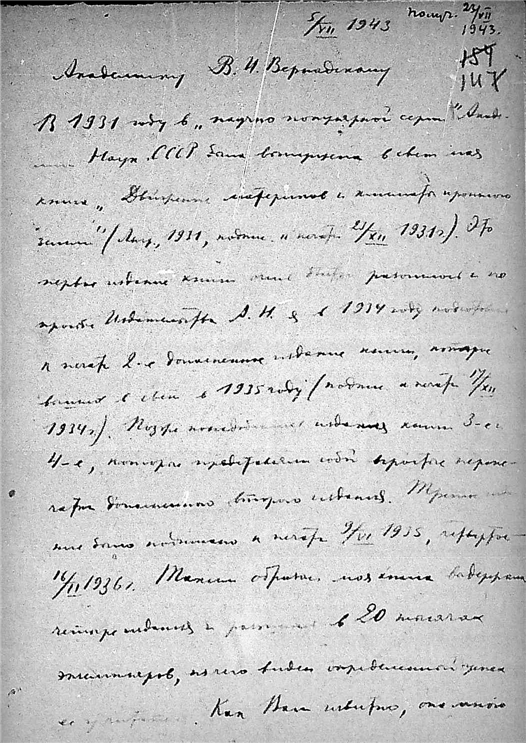 5/VII 1943
получ. 23/VII
1943.
184
147
Академику В. И. Вернадскому
В 1931 году в „научно популярной серии" Академии
Наук СССР была выпущена в свет моя
книга „Движение материков и климаты прошлого
земли" (Лнгр, 1931, подпис. к печати 23/XII 1931 г.). Это
первое издание книги очень быстро разошлось и по
просьбе Издательства А. Н. я в 1934 году подготовил
к печати 2-е дополненное издание книги, которое
вышло в свет в 1935 году (подпис. к печати 17/XII
1934 г.). Позже понадобились издания книги 3-е и
4-е, которые представляли собой простые перепечатки
дополненного второго издания. Третье издание
было подписано к печати 9/VI 1935, четвертое –
16/II 1936 г. Таким образом моя книга выдержала
четыре издания и разошлась в 20 тысячах
экземпляров, из чего виден определенный успех
ее у читателя. Как Вам известно, она много